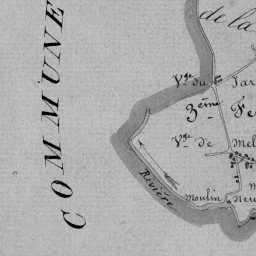 COMMUNE
de la
Vge du Jar
3ème Fe
Vge de Mel
Rivière
Moulin Neu